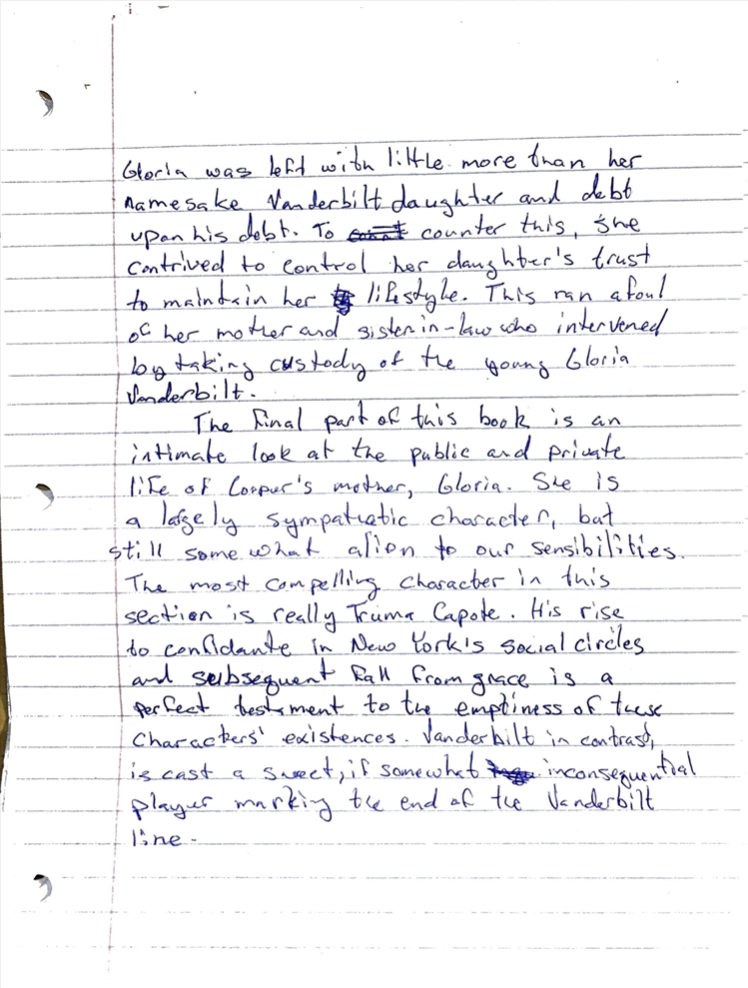 Gloria was left with little more than her
namesake Vanderbilt daughter and debt
upon his debt. To counter this, she
contrived to control her daughter's trust
to maintain her lifestyle. This ran afoul
of her mother and sister in-law who intervened
by taking custody of the young Gloria
Vanderbilt.
The final part of this book is an
intimate look at the public and private
life of Cooper's mother, Gloria. She is
a largely sympathetic character, but
still somewhat alien to our sensibilities.
The most compelling character in this
section is really Truma Capote. His rise
to confidante in New York's social circles
and subsequent fall from grace is a
perfect testament to the emptiness of these
characters' existences. Vanderbilt in contrast,
is cast a sweet, if somewhat inconsequential
player marking the end of the Vanderbilt
line.